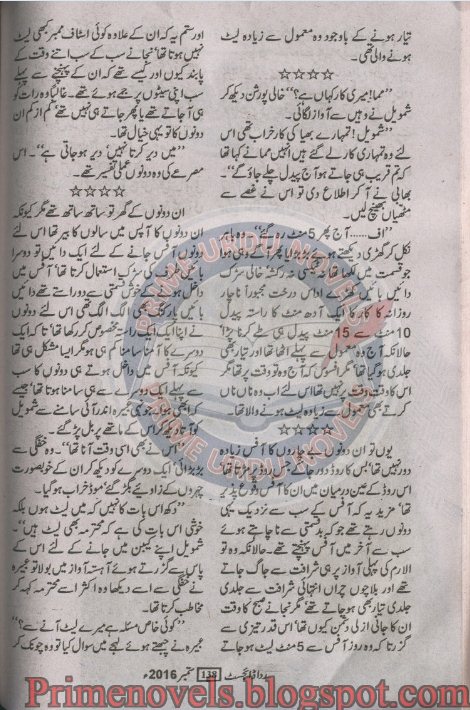 تیار ہونے کے باوجود وہ معمول سے زیادہ لیٹ
ہونے والی تھی۔
☆☆☆☆
”مما! میری کار کہاں ہے؟“ خالی پورشن دیکھ کر
شمویل نے وہیں سے آواز لگائی۔
”شمویل! تمہارے بھیا کی کار خراب تھی اس
لئے وہ تمہاری کار لے گئے ہیں انہیں مما نے کہا تھا
کہ تم قریب ہی جاتے ہو آج پیدل چلے جاؤ گے“۔
بھابی نے آ کر اطلاع دی تو اس نے غصے سے
مٹھیاں بھینچ لیں۔
”اف...... آج پھر 5 منٹ رہ گئے“۔ وہ باہر
نکل کر گھڑی دیکھتے ہوئے بڑبڑایا مگر آگے وہی ہوا
جو قسمت میں لکھا تھا نہ ٹیکسی نہ رکشہ خالی سڑک
دائیں بائیں لگے اداس درخت مجبوراً ناچار
روزانہ کا کار کا ایک آدھ منٹ کا راستہ پیدل
10 منٹ سے 15 منٹ پیدل ہی طے کرنا پڑا
حالانکہ آج وہ معمول سے پہلے اٹھا تھا اور تیار بھی
جلدی ہو گیا تھا مگر افسوس کہ آج وہ تو وقت پر تھا مگر
اس کا وقت وقت نہیں تھا اسی لئے اب وہ ناں ناں
کرتے بھی معمول سے زیادہ لیٹ ہونے والا تھا۔
☆☆☆☆
یوں تو ان دونوں بے چاروں کا آفس زیادہ
دور نہیں تھا بس کار ڈور جاتے جس روڈ پر مڑتا تھا
اس روڈ کے عین درمیان میں ان کا آفس وقوع پذیر
تھا‘ مزید یہ کہ آفس کے سب سے نزدیک یہی
دونوں رہتے تھے جو کہ بدقسمتی سے نا چاہتے ہوئے
سب سے آخر میں آفس پہنچتے تھے۔ حالانکہ وہ تو
الارم کی پہلی آواز پر ہی شرافت سے جاگ جاتے
تھے اور بلا چوں چراں انتہائی شرافت سے جلدی
جلدی تیار بھی ہو جاتے تھے مگر نجانے صبح کا وقت
ان کا جانی ازلی دشمن کیوں تھا‘ اس قدر تیزی سے
گزرتا کہ وہ روز آفس سے 5 منٹ لیٹ ہو جاتے
اور ستم یہ کہ ان کے علاوہ کوئی اسٹاف ممبر کبھی لیٹ
نہیں ہوتا تھا‘ نجانے سب کے سب اتنے وقت کے
پابند کیوں اور کیسے تھے کہ ان کے پہنچنے سے پہلے
سب اپنی سیٹوں پر جمے ہوتے تھے۔ غالباً وہ رات کو
ہی آ جاتے تھے یا پھر جاتے ہی نہیں تھے‘ کم از کم ان
دونوں کا تو یہی خیال تھا۔
”میں دیر کرتا نہیں‘ دیر ہو جاتی ہے“۔ اس
مصرعے کی وہ دونوں عملی تفسیر تھے۔
☆☆☆☆
ان دونوں کے گھر تو ساتھ ساتھ تھے مگر کیونکہ
ان دونوں کا آپس میں سالوں کا بیر تھا اس لئے
دونوں آفس جانے کے لئے ایک دائیں تو دوسرا
بائیں طرف کی سڑک استعمال کرتا تھا‘ آفس میں
داخل ہونے کے راستے بھی دو راستے تھے دائیں
بائیں پارکنگ بھی الگ الگ تھی اس لئے دونوں
نے اپنا اپنا ایک راستہ مخصوص کر رکھا تھا‘ تا کہ ایک
دوسرے کا آمنا سامنا کم ہی ہو مگر ایسا مشکل ہی تھا
کیونکہ آفس میں داخل ہوتے ہی دونوں کا سب
سے پہلے ایک دوسرے سے ہی سامنا ہوتا تھا‘ جیسے
کہ ابھی ہوا‘ جونہی عمیرہ اندر آئی سامنے سے شمویل
کو آتا دیکھ کر اس کے ماتھے پر بل پڑ گئے۔
”اس نے بھی اسی وقت آنا تھا“۔ وہ خفگی سے
بڑبڑائی‘ ایک دوسرے کو دیکھ کر ان کے خوبصورت
چہروں کے زاویے بگڑ گئے‘ موڈ خراب ہو گیا۔
”دکھ اس بات کا نہیں کہ میں لیٹ ہوں بلکہ
خوشی اس بات کی ہے کہ محترمہ بھی لیٹ ہیں“۔
شمویل اپنے کیبن میں جانے کے لئے اس کے
پاس سے گزرتے ہوئے آہستہ آواز میں بولا تو عمیرہ
نے خفگی سے اسے دیکھا وہ اکثر اسے محترمہ کہہ کر
مخاطب کرتا تھا۔
”کوئی خاص مسئلہ ہے میرے لیٹ آنے سے؟“
عمیرہ نے چبھتے ہوئے لہجے میں سوال کیا تو وہ چونک کر
ردا ڈائجسٹ 138 ستمبر 2016ء
PRIME URDU NOVELS
PRIME URDU NOVELS
Primenovels.blogspot.com